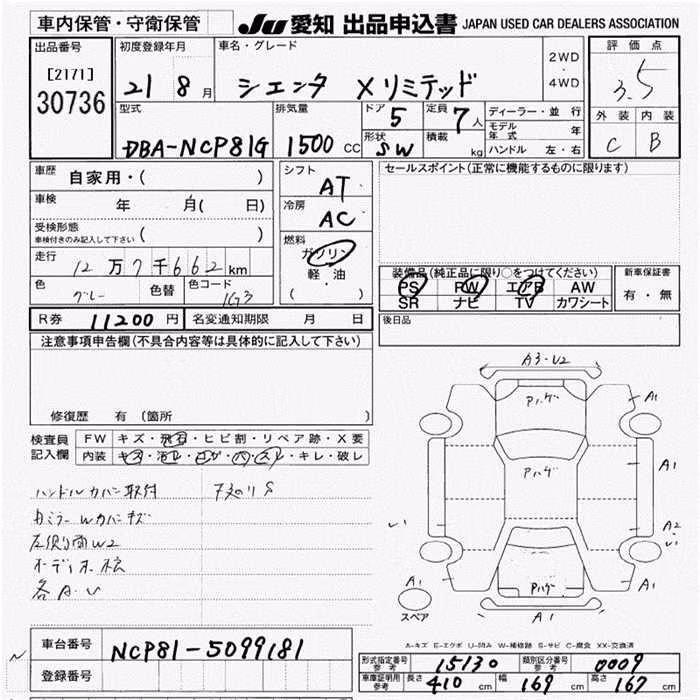 車内保管・守衛保管 JU 愛知 出品申込書 JAPAN USED CAR DEALERS ASSOCIATION
出品番号 初度登録年月 車名・グレード 評価点
[2171] 2WD
30736 21 8月 シエンタ Xリミテッド 4WD 3.5
型式 排気量 ドア 5 定員 7人 ディーラー・並行 外装 内装
DBA-NCP81G 1500cc 形状 SW 積載 kg モデル年式 年 C B
ハンドル 左・右
車歴 自家用・( ) シフト AT セールスポイント(正常に機能するものに限ります)
車検 年 月( 日) 冷房 AC
受検形態 ( )
車検付きのみ記入して下さい
燃料 ガソリン
走行 12万7千662km 軽・油
装備品(純正品に限り○をつけてください) 新車保証書
色 グレー 色替 色コード 1G3 ( )
PS PW エアB AW 有・無
SR ナビ TV カワシート
R券 11200円 名変通知期限 月 日 後日品
注意事項申告欄(不具合内容等は具体的に記入して下さい)
修復歴 有(箇所
A3・U2
Aハゲ
A1
検査員 FW キズ・飛石・ヒビ割・リペア跡・X要
記入欄 内装 キズ・汚レ・コゲ・穴・スレ・キレ・破レ
A1
Aハゲ
ハンドルカバー取付
A2
左側面W2
各A.U
A1 Aハゲ A1
スペア A1
A-キズ E-エクボ U-凹み W-補修跡 S-サビ C-腐食 XX-交換済
車台番号 NCP81-5099181
型式指定番号 参考 15130 類別区分番号 参考 0009
登録番号
車庫証明用 参考 長さ 410cm 幅 169cm 高さ 167cm